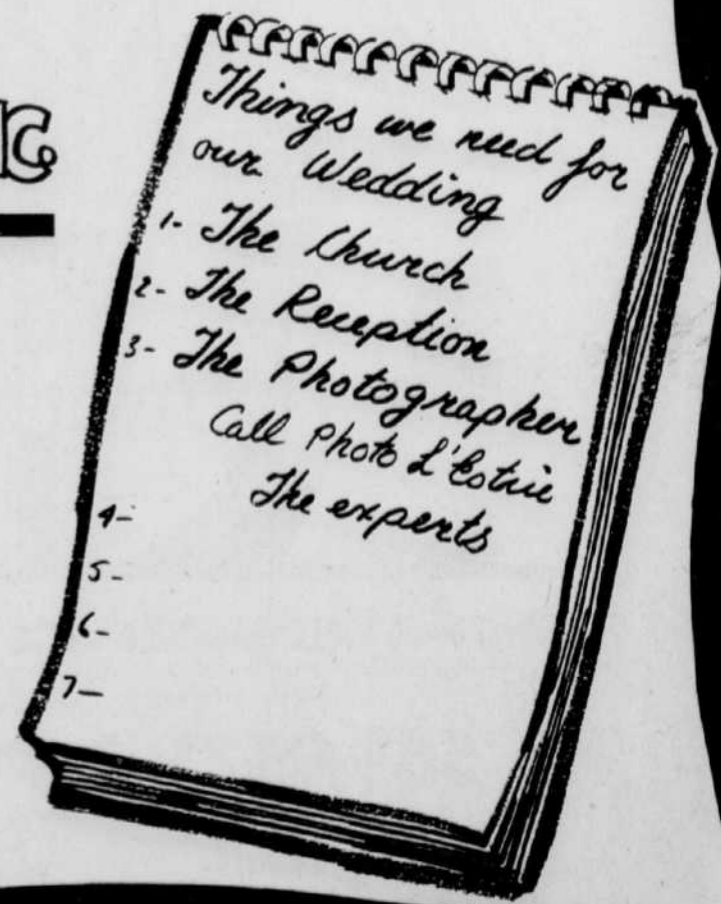 Things we need for
our Wedding
1- The Church
2- The Reception
3- The Photographer
Call Photo L'Estrie
The experts
4-
5-
6-
7-